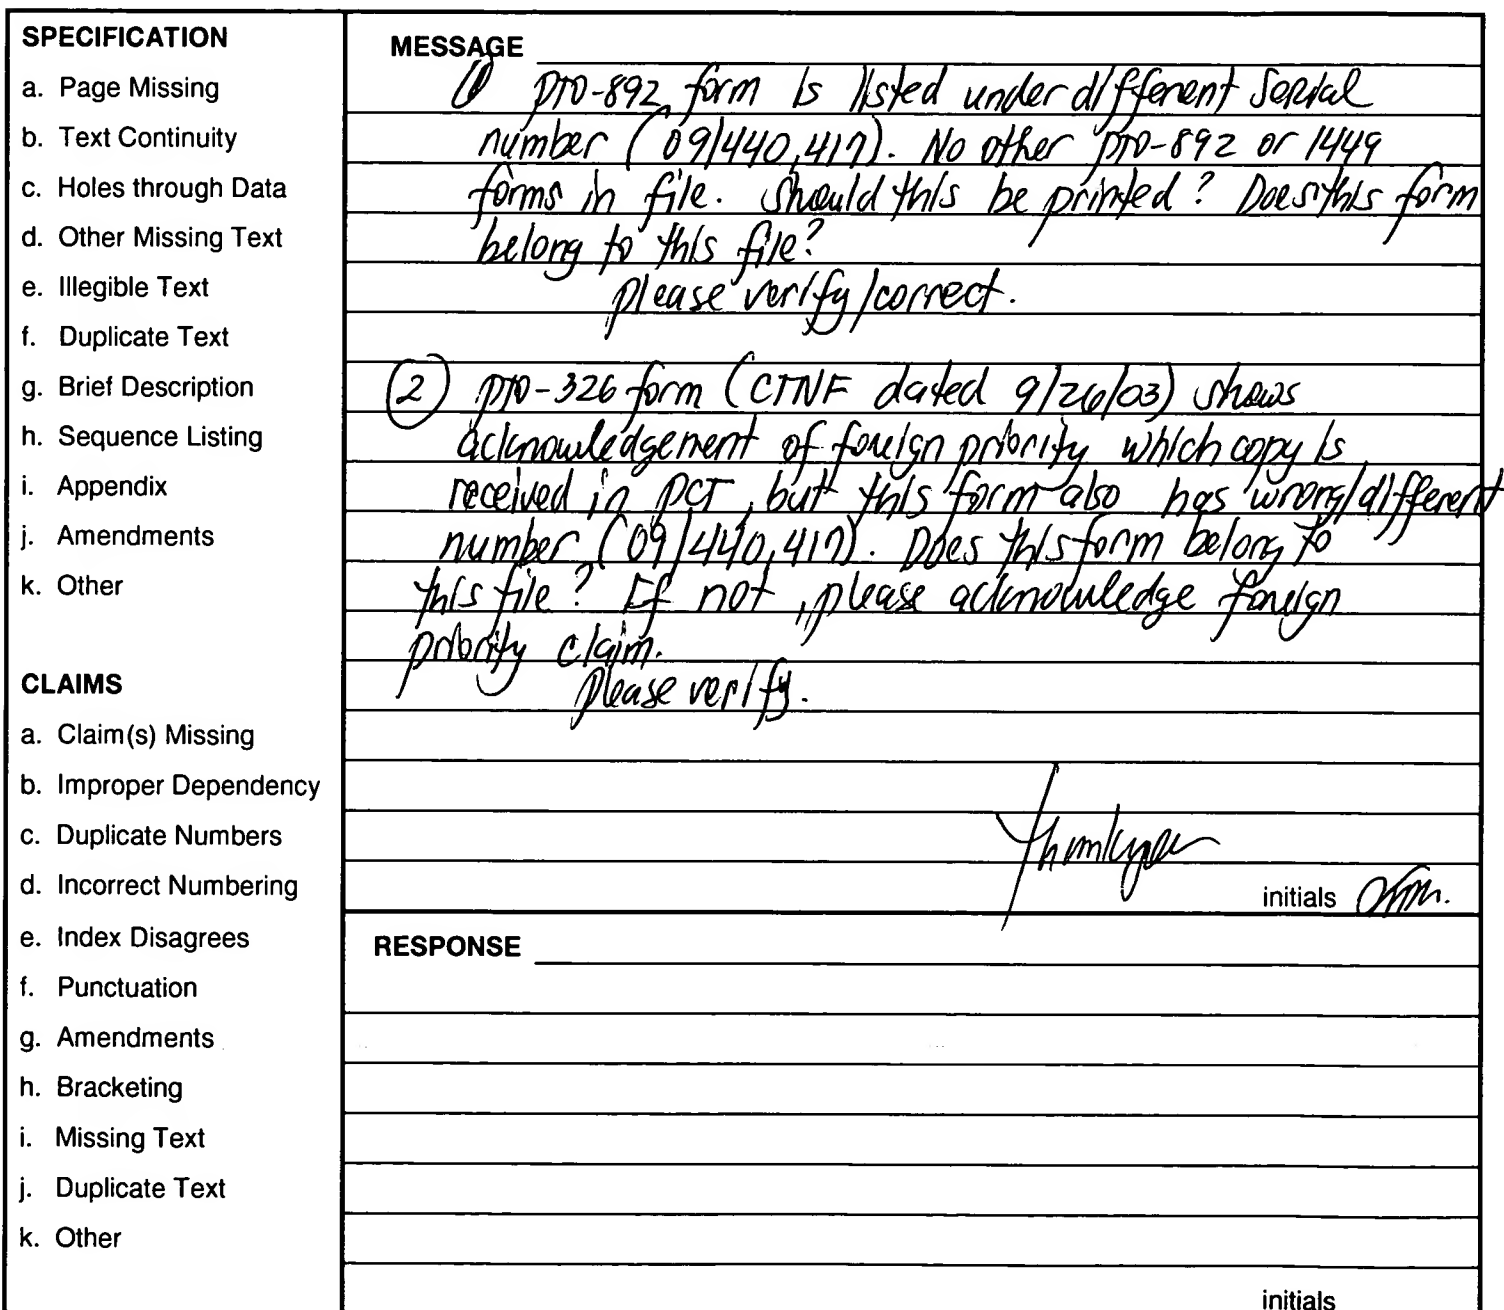 SPECIFICATION
a. Page Missing
b. Text Continuity
c. Holes through Data
d. Other Missing Text
e. Illegible Text
f. Duplicate Text
g. Brief Description
h. Sequence Listing
i. Appendix
j. Amendments
k. Other
CLAIMS
a. Claim(s) Missing
b. Improper Dependency
c. Duplicate Numbers
d. Incorrect Numbering
e. Index Disagrees
f. Punctuation
g. Amendments
h. Bracketing
i. Missing Text
j. Duplicate Text
k. Other
MESSAGE
① PTO-892 form is listed under different serial
number (09/440,417). No other PTO-892 or 1449
forms in file. Should this be printed? Does this form
belong to this file?
Please verify/correct.
② PTO-326 form (CTNF dated 9/26/03) shows
acknowledgement of foreign priority which copy is
received in PCT, but this form also has wrong/different
number (09/440,417). Does this form belong to
this file? If not, please acknowledge foreign
priority claim.
Please verify.
Thank you
initials
RESPONSE
initials